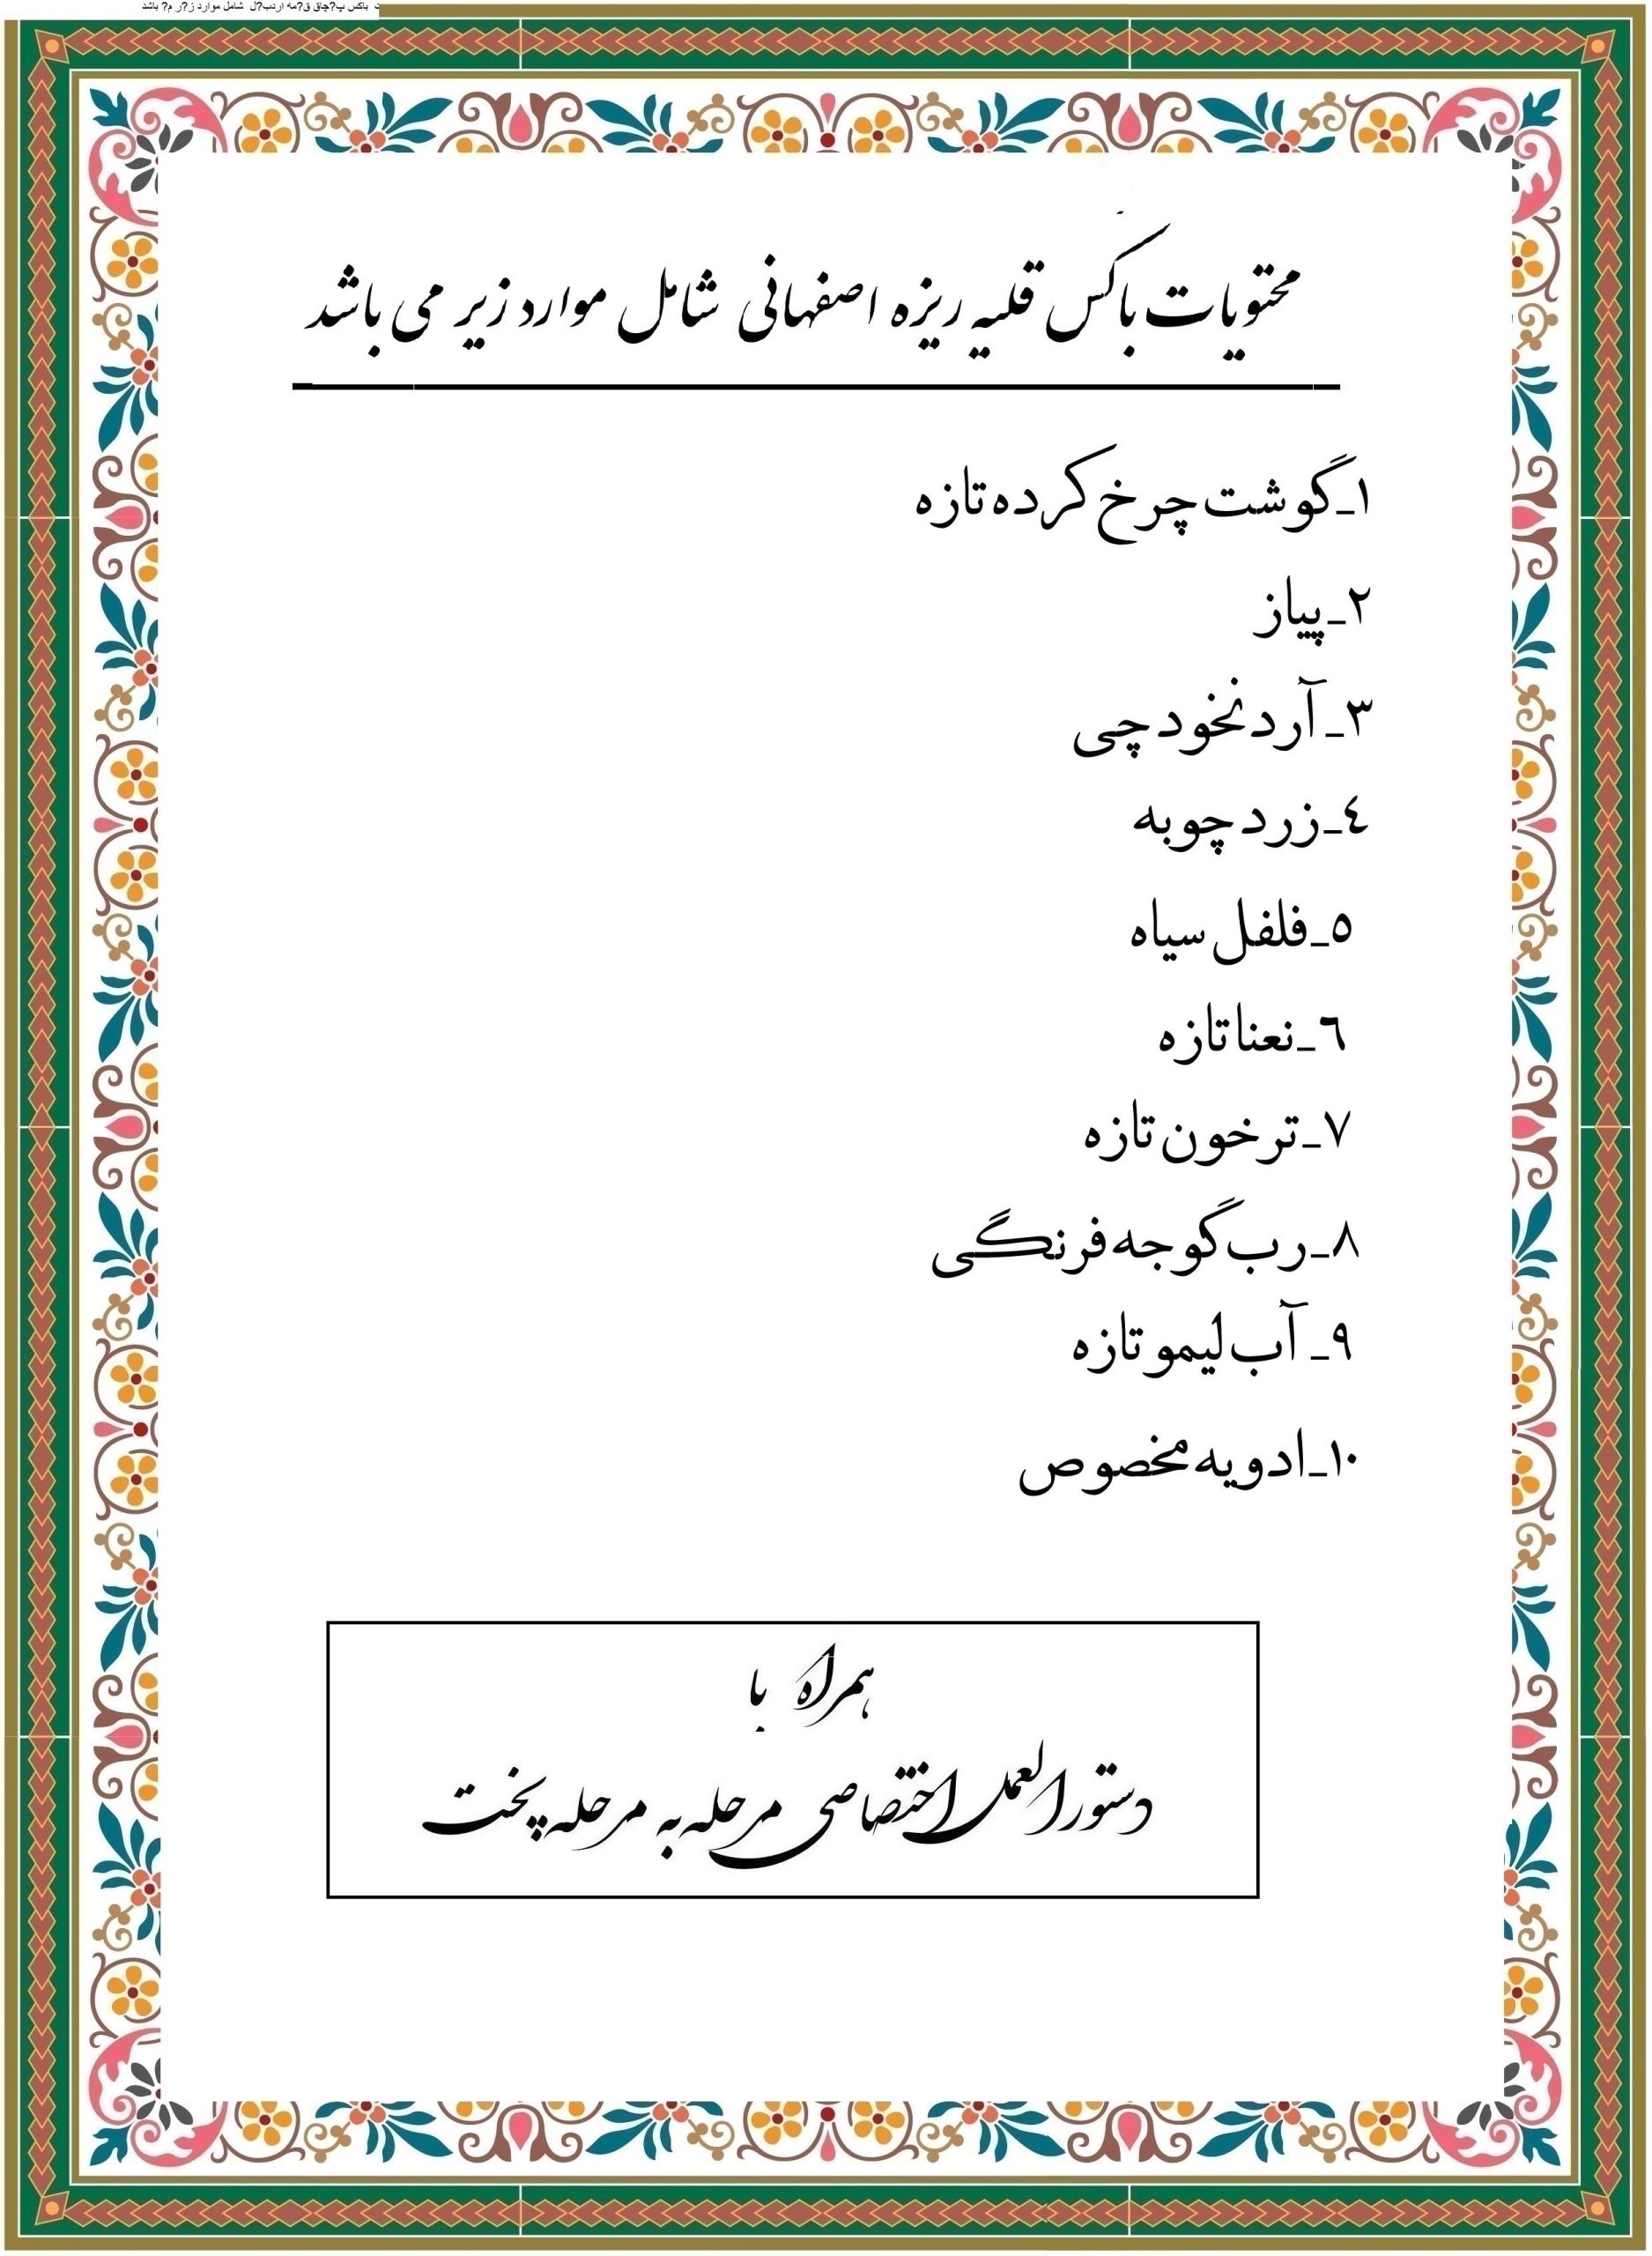 باکس پ?چاق ق?مه اردب?ل شامل موارد ز?ر م? باشد
محتویات باکس قلیه ریزه اصفهانی شامل موارد زیر می باشد
۱_گوشت چرخ کرده تازه
۲_پیاز
۳_آرد نخودچی
٤_زردچوبه
۵_فلفل سیاه
٦_نعنا تازه
۷_ترخون تازه
۸_رب گوجه فرنگی
۹_آب لیمو تازه
۱۰_ادویه مخصوص
همراه با
دستورالعمل اختصاصی مرحله به مرحله پخت